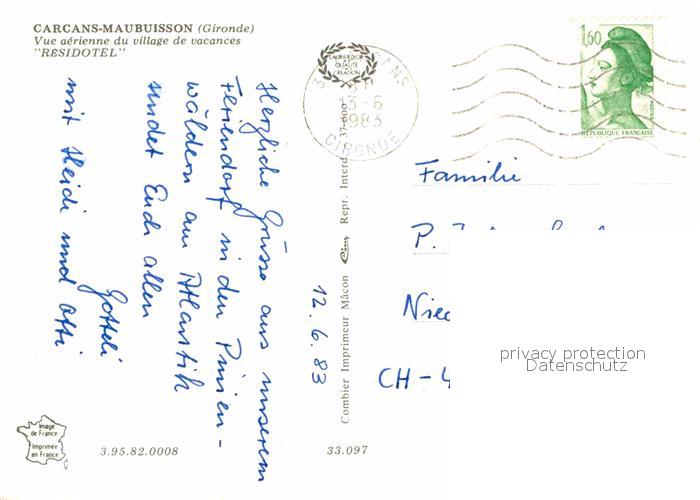 CARCANS-MAUBUISSON (Gironde)
Vue aérienne du village de vacances
"RESIDOTEL"
Herzliche Grüsse aus unserem
Feriendorf in den Pinien-
wäldern am Atlantik
sendet Euch allen
Gotteli
mit Heidi und Otti
12.6.83
Combier Imprimeur Mâcon Cim Repr. Interd. 37-600
LAURIER D'OR
QUALITE
CREATION
13-6
1983
GIRONDE
1,60
POSTES
REPUBLIQUE FRANÇAISE
Familie
P.
CH-4
privacy protection
Datenschutz
Image
de France
Imprimée
en France
3.95.82.0008
33.097